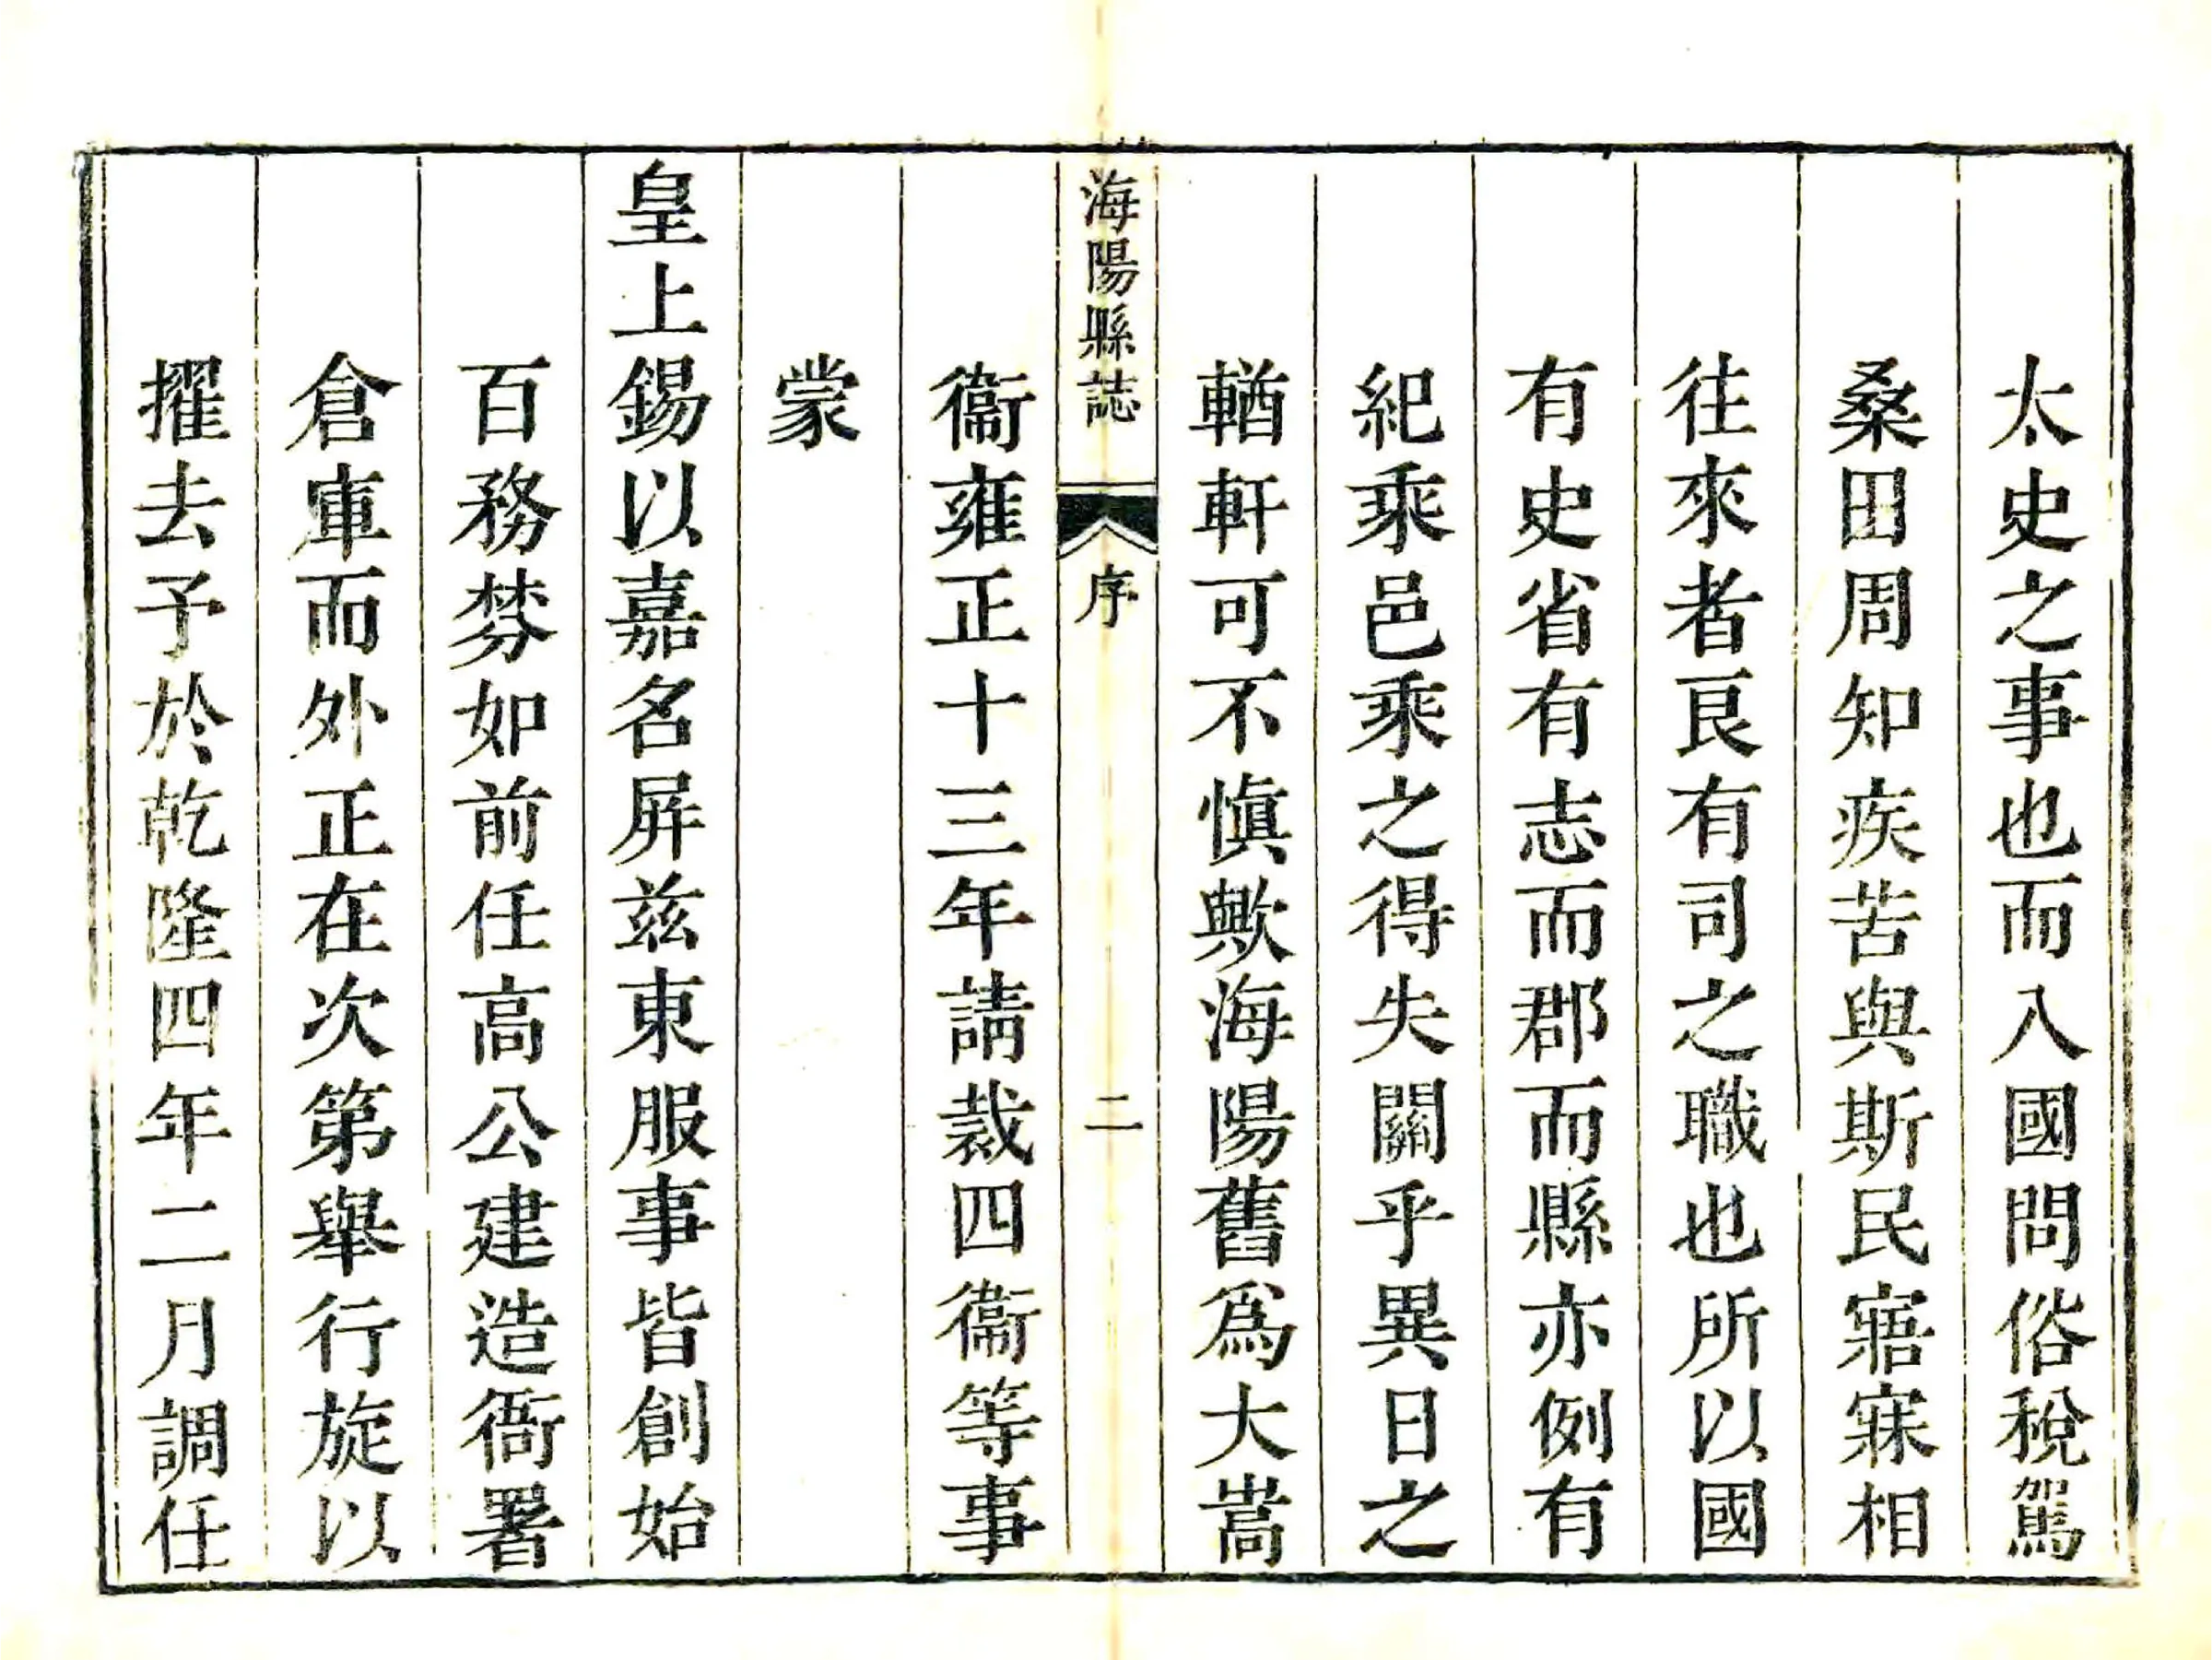 太史之事也而入國問俗稅駕
桑田周知疾苦與斯民寤寐相
往來者良有司之職也所以國
有史省有志而郡而縣亦例有
紀乘邑乘之得失關乎異日之
輶軒可不慎歟海陽舊爲大嵩
海陽縣誌 序 二
衞雍正十三年請裁四衞等事
蒙
皇上錫以嘉名屛兹東服事皆創始
百務棼如前任高公建造衙署
倉庫而外正在次第舉行旋以
擢去予於乾隆四年二月調任